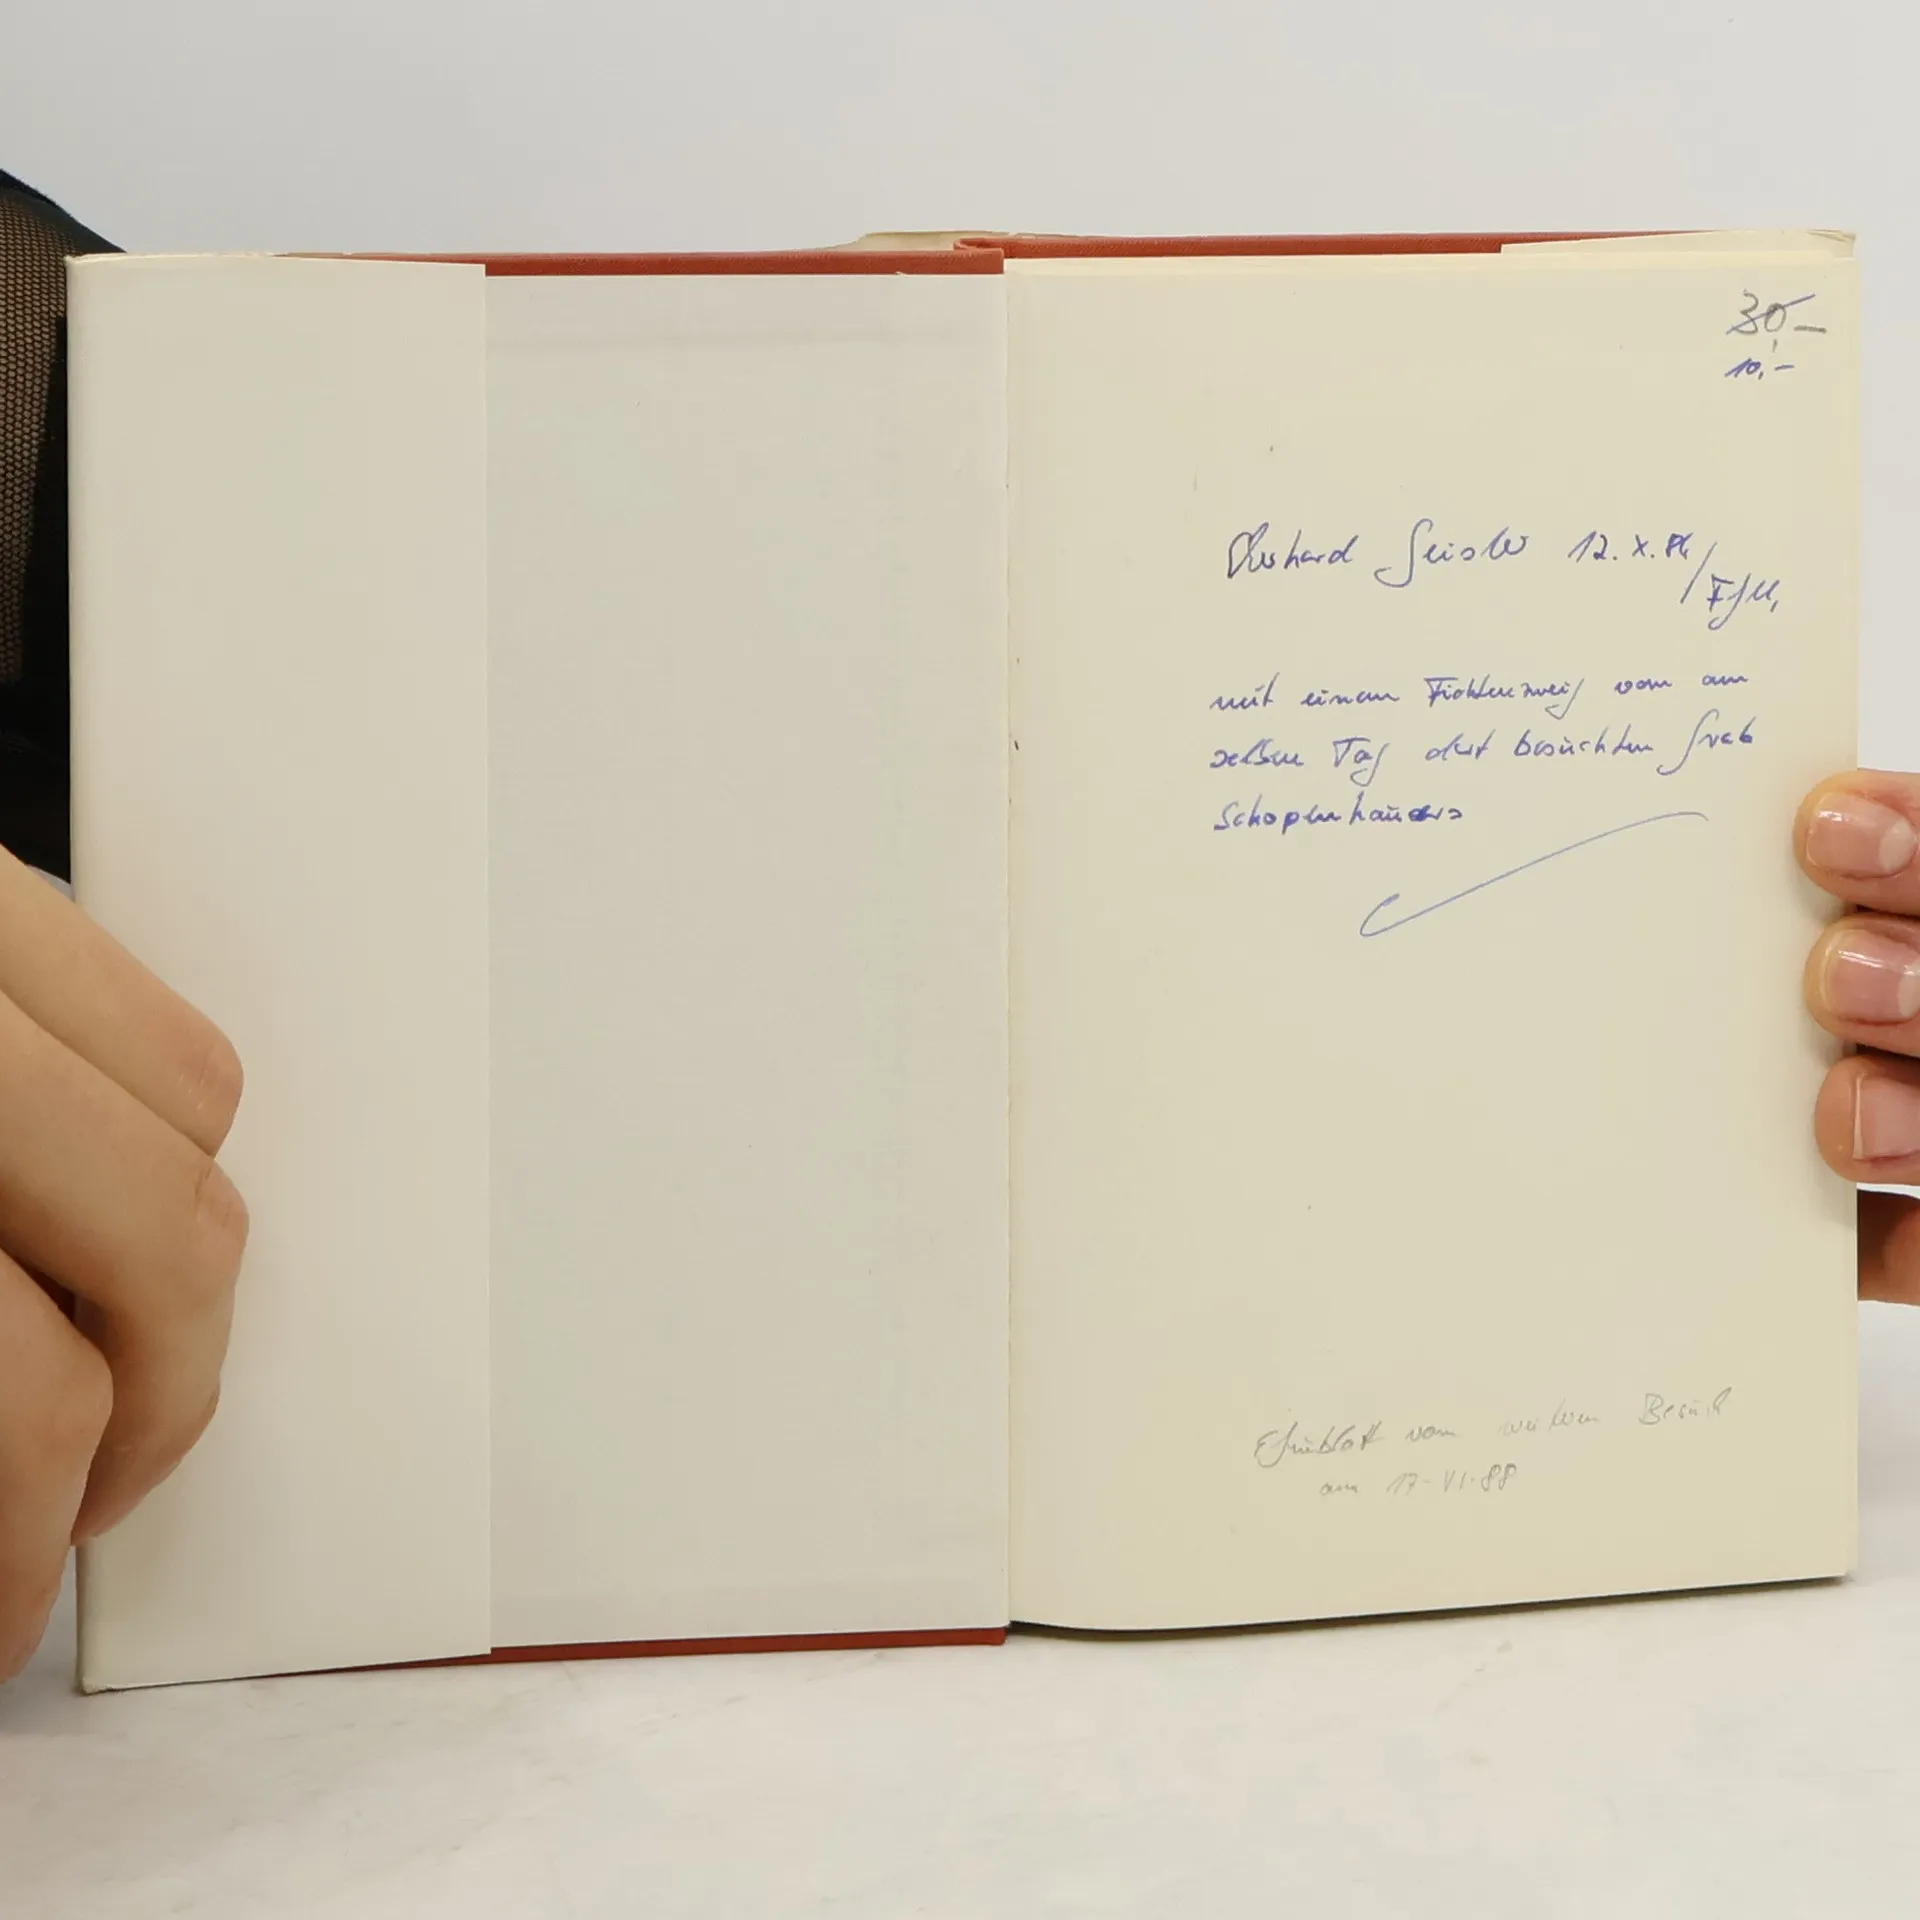 30,-
10,-
Eberhard Geisler 12.X.84/
Ffm,
mit einem Fichtenzweig vom am
selben Tag dort besuchten Grab
Schopenhauers
Efeublatt vom weiteren Besuch
am 17-VI-88